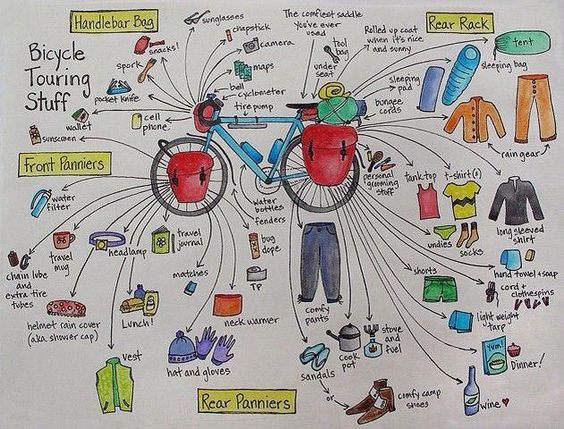 Handlebar Bag
Rear Rack
Bicycle
Touring
Stuff
sunglasses
chapstick
camera
maps
snacks!
spork
pocket knife
wallet
sunscreen
cell
phone
bell
cyclometer
tire pump
The comfiest saddle
you've ever
used
tool
bag
under
seat
Rolled up coat
when it's nice
and sunny
sleeping
pad
bungee
cords
tent
sleeping bag
rain gear
Front Panniers
water
filter
chain lube
and
extra tire
tubes
travel
mug
headlamp
travel
journal
helmet rain cover
(aka shower cap)
Lunch!
vest
matches
hat and gloves
neck warmer
water
bottles
fenders
bug
dope
TP
Rear Panniers
personal
grooming
stuff
tank top
t-shirt(s)
long sleeved
shirt
undies
socks
hand towel + soap
shorts
cord +
clothespins
light weight
tarp
comfy
pants
sandals
or
comfy camp
shoes
cook
pot
stove
and
fuel
Yum!
Dinner!
wine ♥